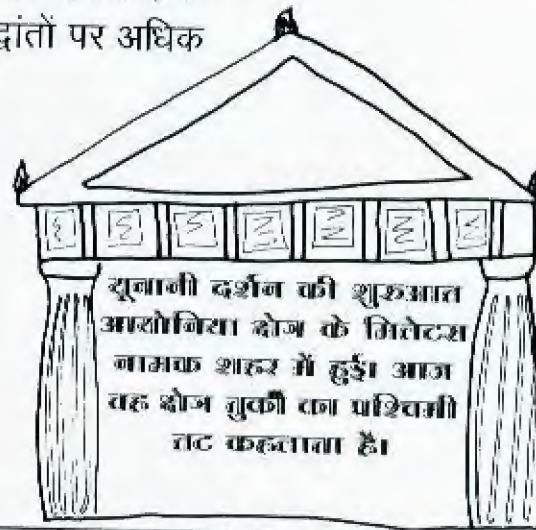 द्धांतों पर अधिक
यूनानी दर्शन की शुरुआत
आयोनिया क्षेत्र के मिलेटस
नामक शहर में हुई। आज
वह क्षेत्र तुर्की का पश्चिमी
तट कहलाता है।